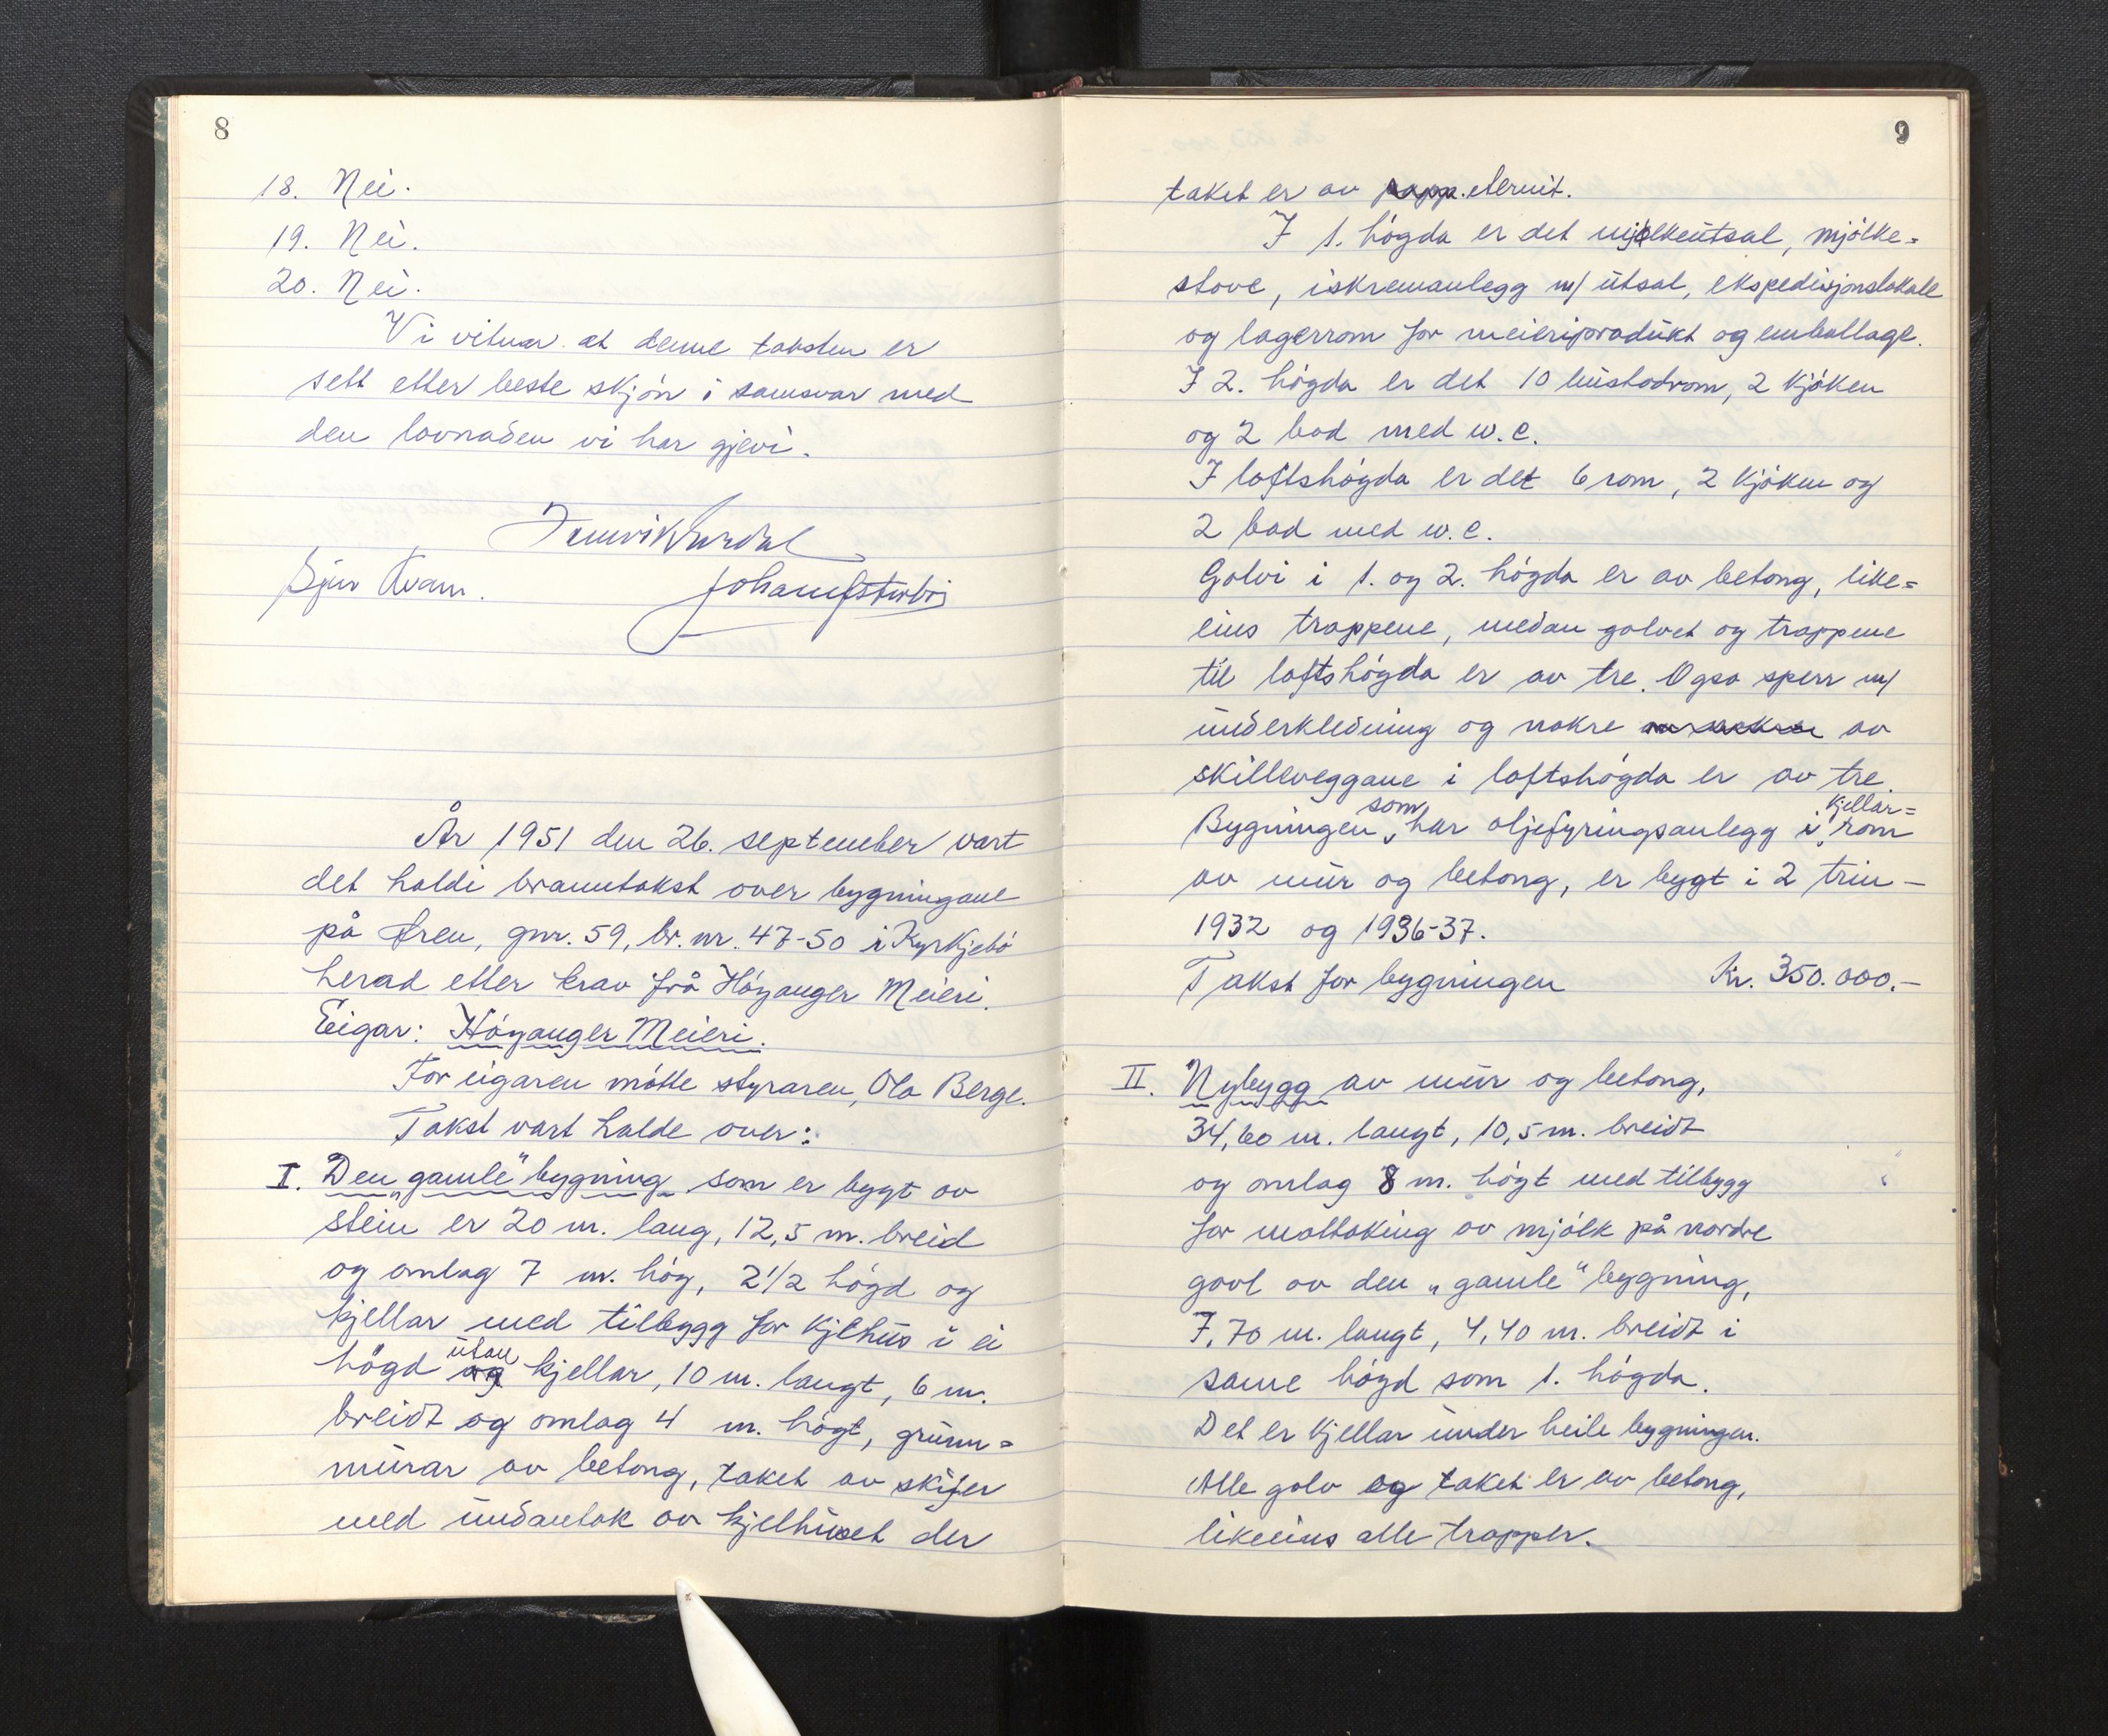 8
18. Nei.
19. Nei.
20. Nei.
Vi vitnar at denne taksten er
sett etter beste skjön i samsvar med
den lovnaden vi har gjevi.
Sjur Kvam.
År 1951 den 26. september vart
det haldi branntakst over bygningane
på Øren, gnr. 59, br. nr. 47-50 i Kyrkjebö
herad etter krav frå Höyanger Meieri.
Eigar: Höyanger Meieri.
For eigaren mötte styraren, Ola Berge.
Takst vart halde over:
I. Den „gamle" bygning som er bygt av
stein er 20 m. lang, 12,5 m. breid
og omlag 7 m. hög, 2 1/2 högd og
kjellar med tilbygg for kjelhus i ei
högd og utan kjellar, 10 m. langt, 6 m.
breidt og omlag 4 m. högt, grunn=
murar av betong, taket av skifer
med undantak av kjelhuset der
9
taket er av papp. eternit.
I 1. högda er det mjölkeutsal, mjölke=
stove, iskremanlegg m/ utsal, ekspedisjonslokale
og lagerrom for meieriprodukt og emballage.
I 2. högda er det 10 bustadrom, 2 kjöken
og 2 bad med w.c.
I loftshögda er det 6 rom, 2 kjöken og
2 bad med w.c.
Golvi i 1. og 2. högda er av betong, like=
eins trappene, medan golvet og trappene
til loftshögda er av tre. Ogso sperr m/
underkledning og nokre av
skilleveggane i loftshögda er av tre.
Bygningen, som har oljefyringsanlegg i kjellar=rom
av mur og betong, er bygt i 2 trin –
1932 og 1936-37.
Takst for bygningen Kr. 350.000.-
II. Nybygg av mur og betong,
34,60 m. langt, 10,5 m. breidt
og omlag 8 m. högt med tilbygg
for mottaking av mjölk på nordre
gavl av den „gamle" bygning,
7,70 m. langt, 4,40 m. breidt i
same högd som 1. högda.
Det er kjellar under heile bygningen.
Alle golv og taket er av betong,
likeeins alle trapper.